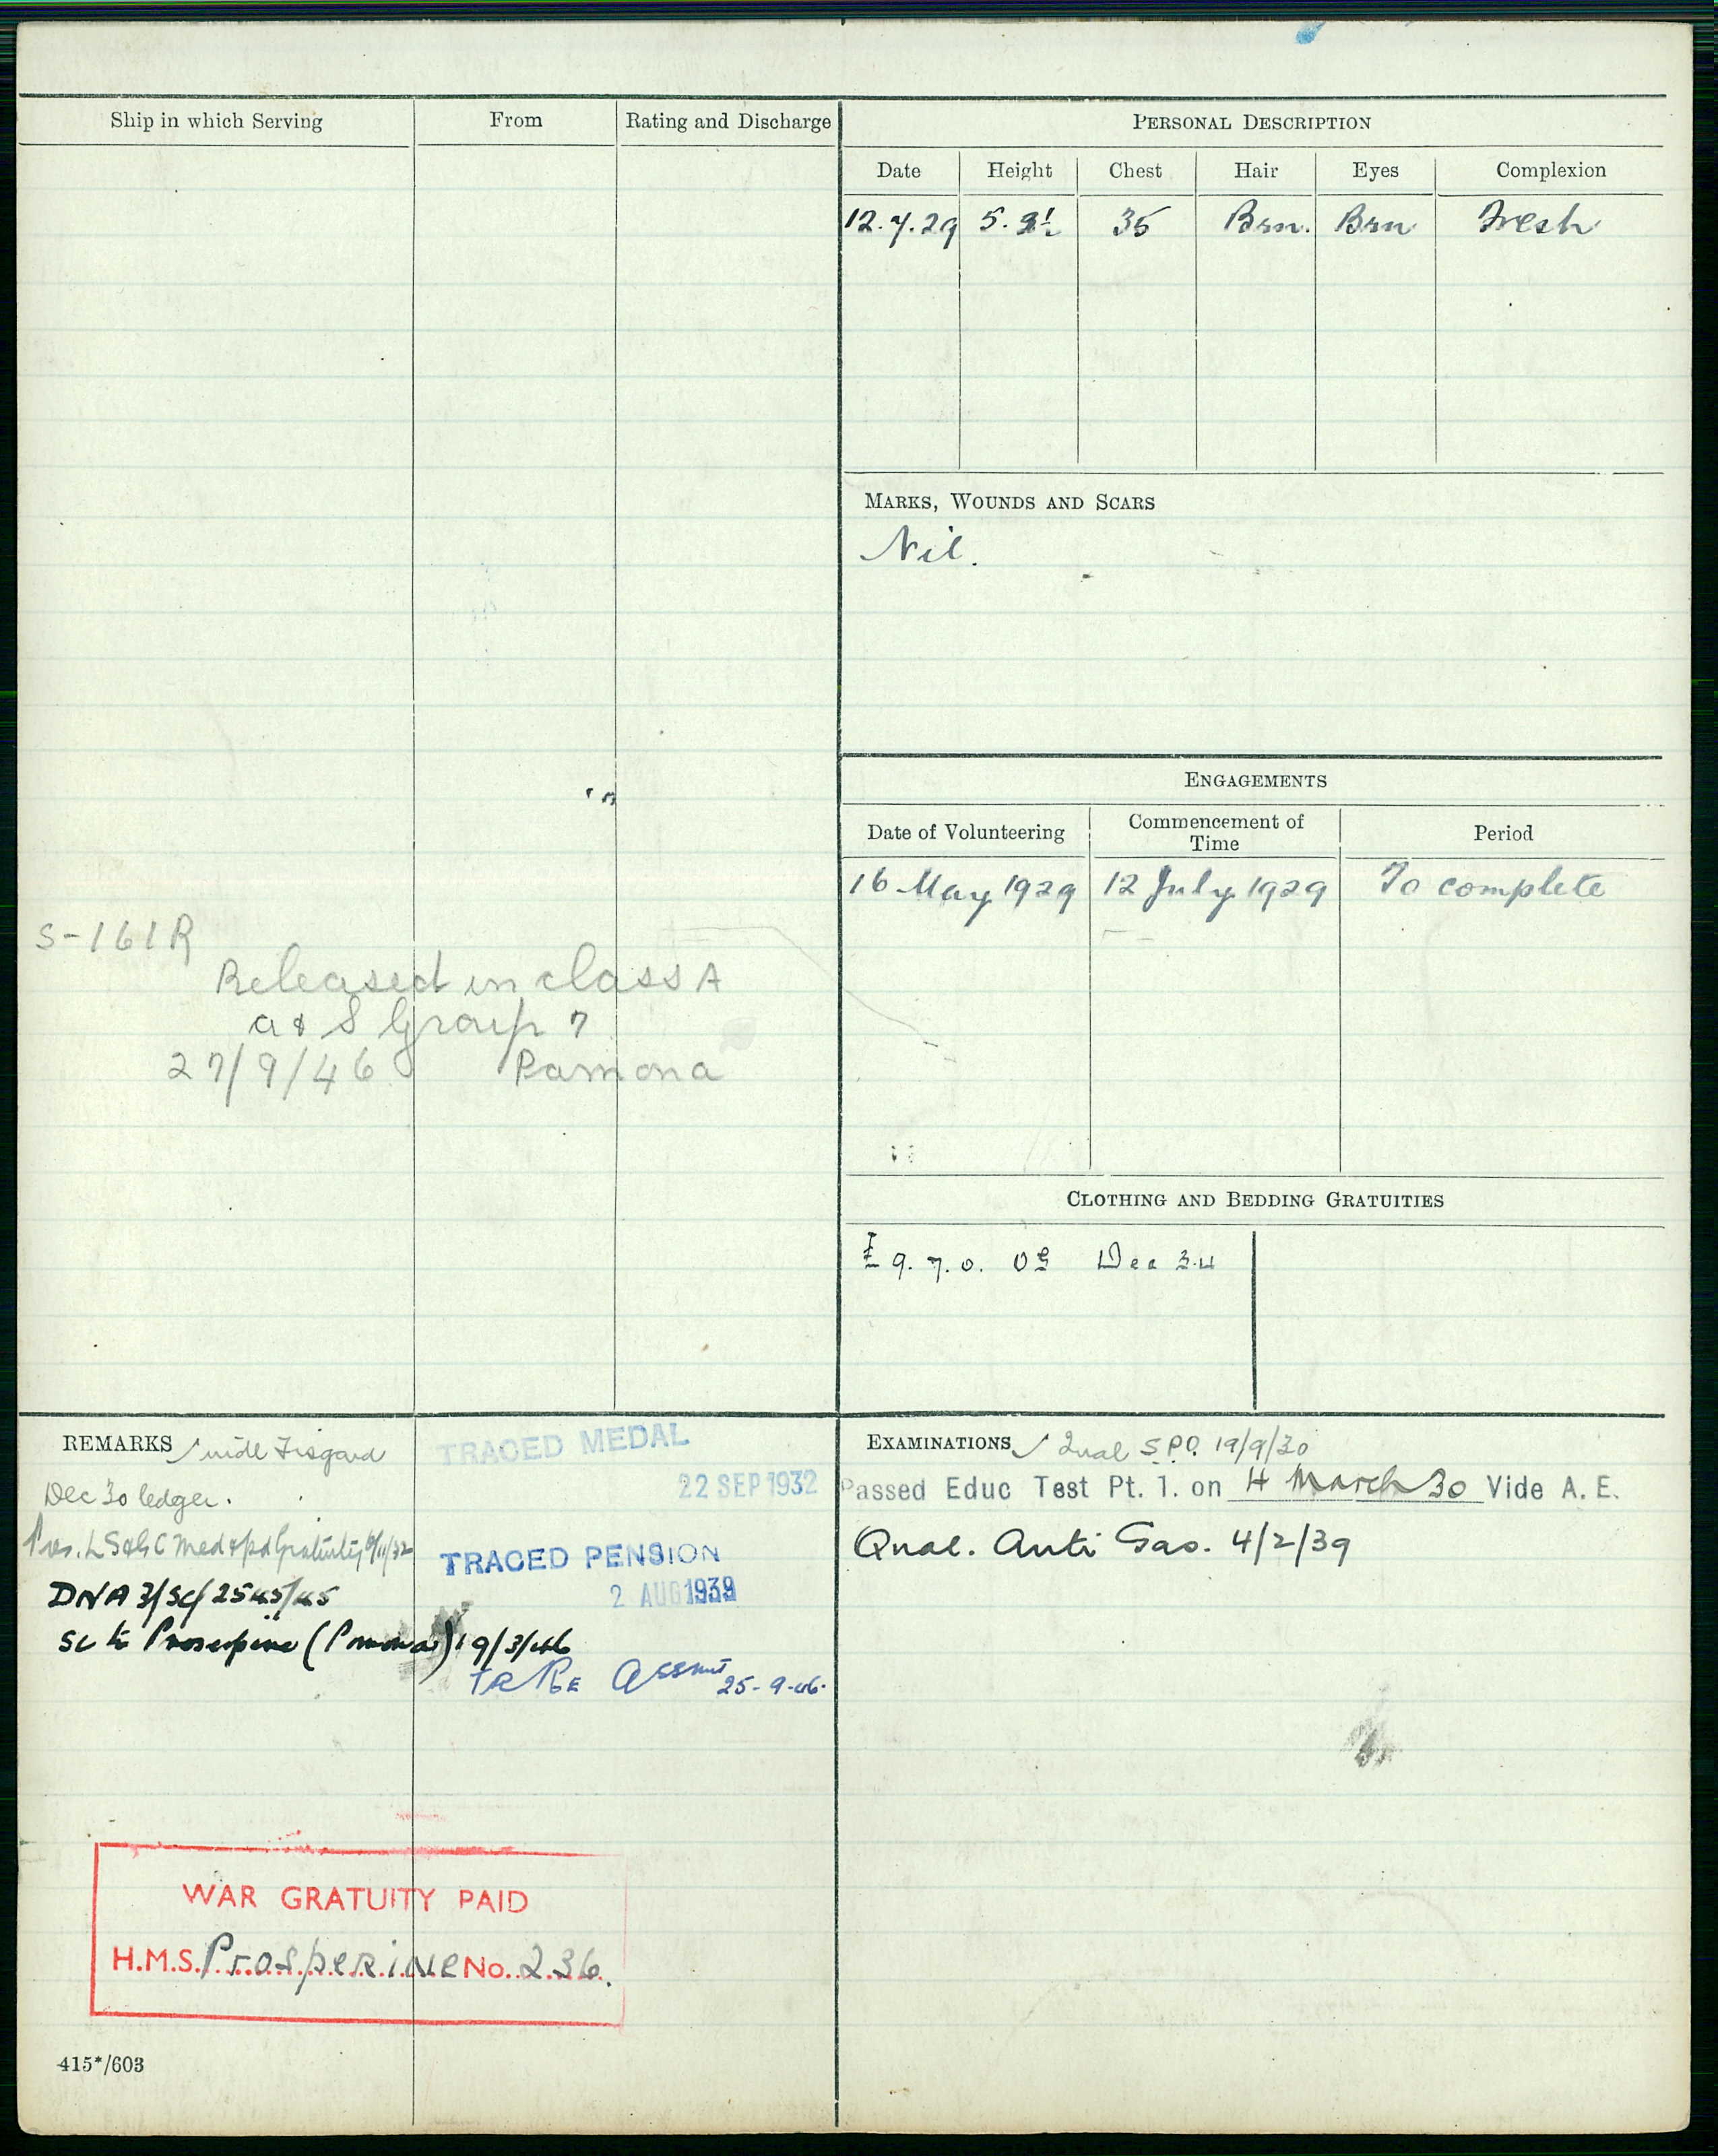 Ship in which Serving From Rating and Discharge
S-161R
Released in class A
a & S Group 7
27/9/46 Pamona
PERSONAL DESCRIPTION
Date Height Chest Hair Eyes Complexion
12.7.29 5. 35 Brn. Brn Fresh
MARKS, WOUNDS AND SCARS
Nil.
ENGAGEMENTS
Date of Volunteering Commencement of Time Period
16 May 1929 12 July 1929 To complete
CLOTHING AND BEDDING GRATUITIES
£ 9. 7. 0. Dec 34
REMARKS vide Fisgard
Dec 30 ledger.
L S & G C Med & pd Gratuity
DNA 3/SC/2545/45
SC to Proserpine (Pomona) 19/3/46
Assmt 25-9-46.
TRACED MEDAL
22 SEP 1932
TRACED PENSION
2 AUG 1939
WAR GRATUITY PAID
H.M.S. Prosperine No. 236.
415*/603
EXAMINATIONS Qual S.P.O. 19/9/30
Passed Educ Test Pt. 1. on 4 March 30 Vide A. E.
Qual. Anti Gas. 4/2/39